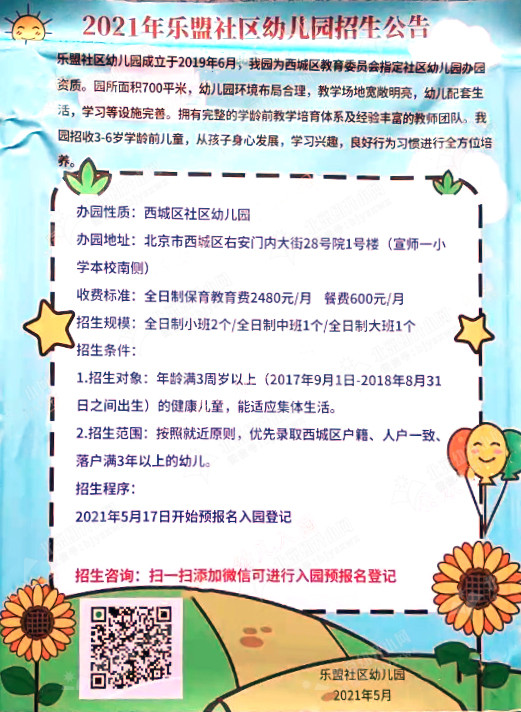 2021年乐盟社区幼儿园招生公告
乐盟社区幼儿园成立于2019年6月，我园为西城区教育委员会指定社区幼儿园办园
资质。园所面积700平米，幼儿园环境布局合理，教学场地宽敞明亮，幼儿配套生
活，学习等设施完善。拥有完整的学龄前教学培育体系及经验丰富的教师团队。我
园招收3-6岁学龄前儿童，从孩子身心发展，学习兴趣，良好行为习惯进行全方位培
养。
办园性质：西城区社区幼儿园
办园地址：北京市西城区右安门内大街28号院1号楼（宣师一小
学本校南侧）
收费标准：全日制保育教育费2480元/月 餐费600元/月
招生规模：全日制小班2个/全日制中班1个/全日制大班1个
招生条件：
1.招生对象：年龄满3周岁以上（2017年9月1日-2018年8月31
日之间出生）的健康儿童，能适应集体生活。
2.招生范围：按照就近原则，优先录取西城区户籍、人户一致、
落户满3年以上的幼儿。
招生程序：
2021年5月17日开始预报名入园登记
招生咨询：扫一扫添加微信可进行入园预报名登记
乐盟社区幼儿园
2021年5月